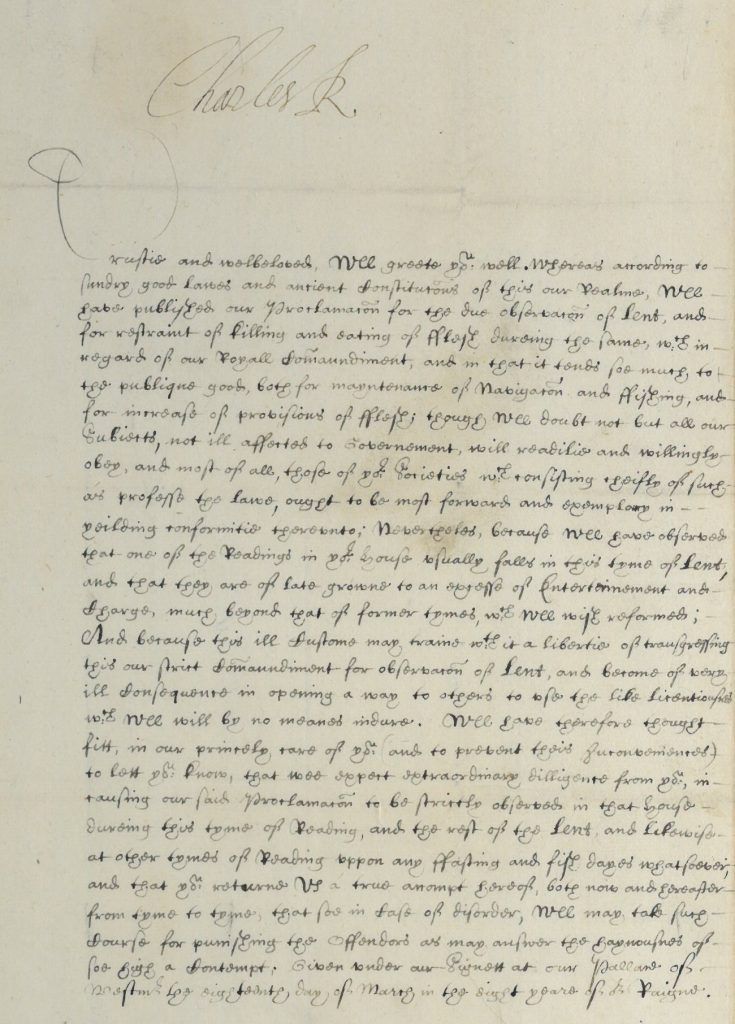 Charles R.
Trustie and welbeloved, Wee greete you well. Whereas according to
sundry good lawes and ancient Constitucons of this our Realme, Wee
have published our Proclamacon for the due observacon of Lent, and
for restraint of killing and eating of fflesh dureing the same, wch in
regard of our Royall Comaundiment, and in that it tends soe much to
the publique good, both for mayntenance of Navigacon and ffishing, and
for increase of provisions of fflesh; though Wee doubt not but all our
Subiects, not ill affected to Governement, will readilie and willingly
obey, and most of all, those of yor Societies wch consisting cheifly of such
as professe the lawe, ought to be most forward and exemplary in
yeilding conformitie therevnto; Nevertheles, because Wee have observed
that one of the Readings in yor House vsually falls in this tyme of Lent,
and that they are of late growne to an excesse of Entertainement and
Charge, much beyond that of former tymes, wch Wee wish reformed;
And because this ill Custome may traine wth it a libertie of transgressing
this our strict Comaundiment for observacon of Lent, and become of very
ill Consequence in opening a way to others to vse the like licentiousnes
wch Wee will by no meanes indure. Wee have therefore thought
fitt, in our princely care of you (and to prevent theis Inconveniences)
to lett you know, that wee expect extraordinary dilligence from you, in
causing our said Proclamacon to be strictly observed in that House
dureing this tyme of Reading, and the rest of the Lent, and likewise
at other tymes of Reading vppon any ffasting and fish dayes whatsoever,
and that you returne Vs a true accompt hereof, both now and hereafter
from tyme to tyme, that soe in Case of disorder, Wee may take such
Course for punishing the Offendors as may answer the haynousnes of
soe high a Contempt. Given vnder our Signett at our Pallace of
Westmr the eighteenth day of March in the eight yeare of or Raigne.